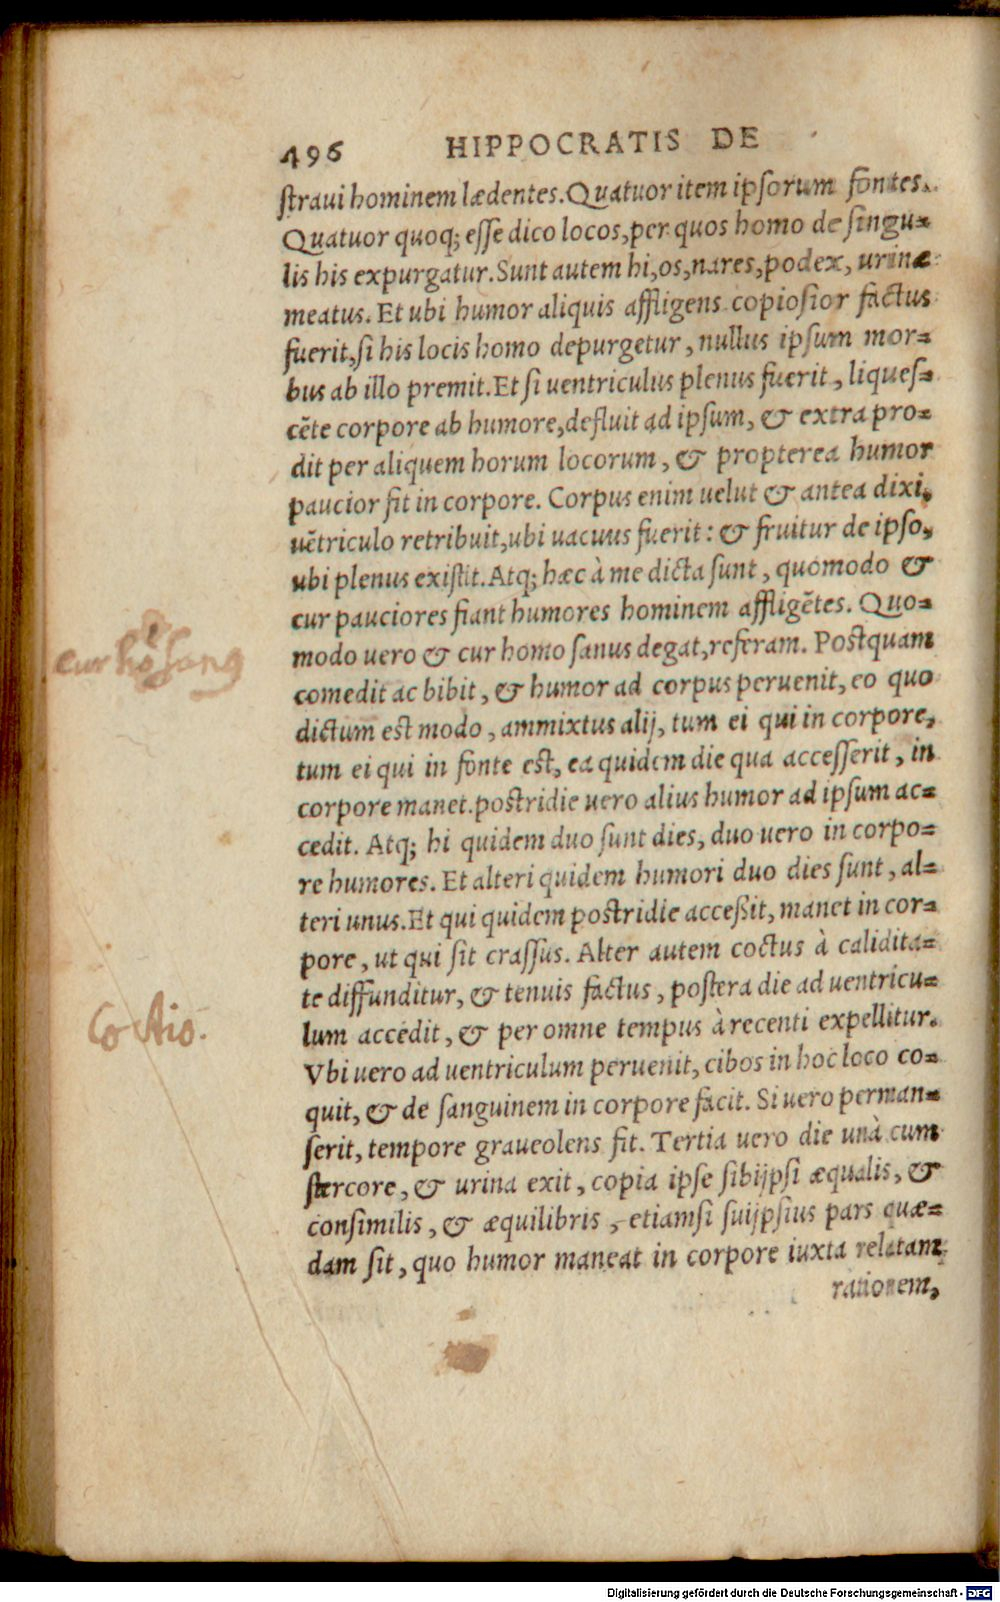 496 HIPPOCRATIS DE
straui hominem lædentes. Quatuor item ipsorum fontes.
Quatuor quoq; esse dico locos, per quos homo de singu=
lis his expurgatur. Sunt autem hi, os, nares, podex, urinæ
meatus. Et ubi humor aliquis affligens copiosior factus
fuerit, si his locis homo depurgetur, nullus ipsum mor=
bus ab illo premit. Et si uentriculus plenus fuerit, liques=
cēte corpore ab humore, defluit ad ipsum, & extra pro=
dit per aliquem horum locorum, & propterea humor
paucior fit in corpore. Corpus enim uelut & antea dixi,
uētriculo retribuit, ubi uacuus fuerit: & fruitur de ipso,
ubi plenus existit. Atq; hæc à me dicta sunt, quomodo &
cur pauciores fiant humores hominem affligētes. Quo=
modo uero & cur homo sanus degat, referam. Postquam
cur hō sang
comedit ac bibit, & humor ad corpus peruenit, eo quo
dictum est modo, ammixtus alij, tum ei qui in corpore,
tum ei qui in fonte est, ea quidem die qua accesserit, in
corpore manet. postridie uero alius humor ad ipsum ac=
cedit. Atq; hi quidem duo sunt dies, duo uero in corpo=
re humores. Et alteri quidem humori duo dies sunt, al=
teri unus. Et qui quidem postridie acceßit, manet in cor=
pore, ut qui sit crassus. Alter autem coctus à calidita=
te diffunditur, & tenuis factus, postera die ad uentricu=
lum accedit, & per omne tempus à recenti expellitur.
Coctio.
Vbi uero ad uentriculum peruenit, cibos in hoc loco co=
quit, & de sanguinem in corpore facit. Si uero perman=
serit, tempore graueolens fit. Tertia uero die unà cum
stercore, & urina exit, copia ipse sibijpsi æqualis, &
consimilis, & æquilibris, etiamsi suijpsius pars quæ=
dam sit, quo humor maneat in corpore iuxta relatam
rationem,
Digitalisierung gefördert durch die Deutsche Forschungsgemeinschaft - DFG